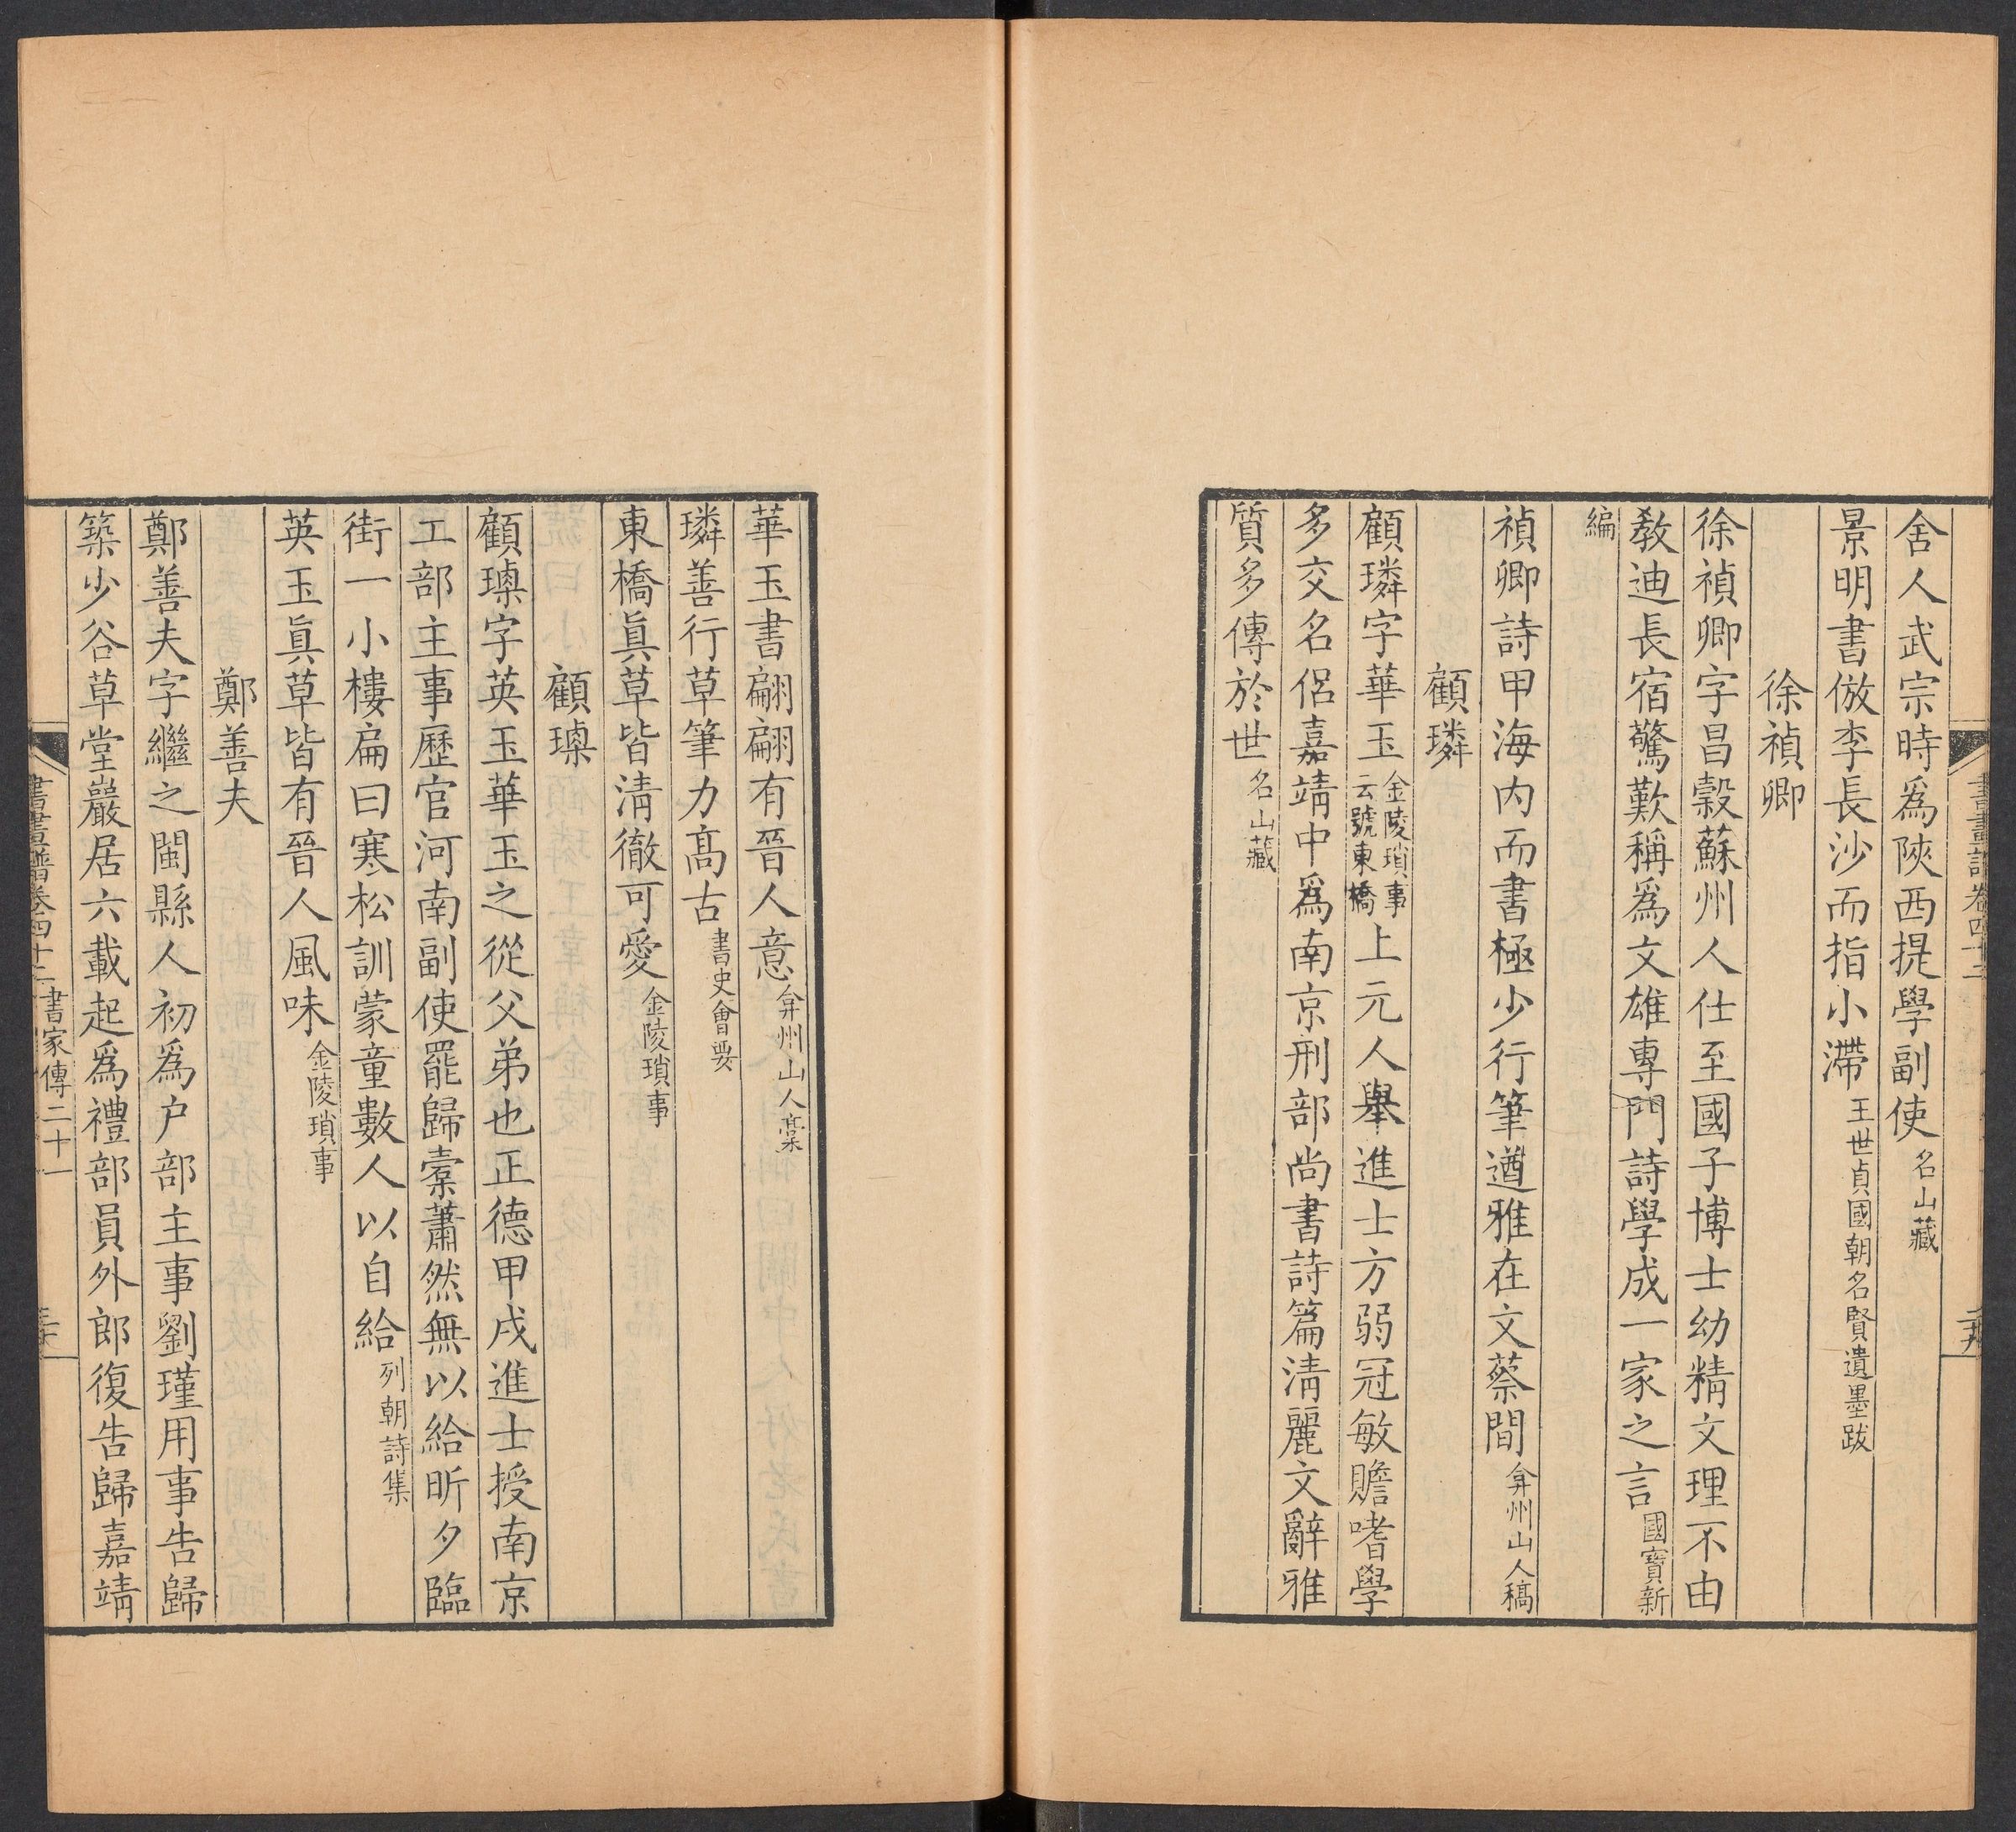 舍人武宗時爲陝西提學副使名山藏
景明書倣李長沙而指小滯王世貞國朝名賢遺墨跋
徐禎卿
徐禎卿字昌穀蘇州人仕至國子博士幼精文理不由
敎迪長宿驚歎稱爲文雄專門詩學成一家之言國寶新
編
禎卿詩甲海内而書極少行筆遒雅在文蔡間弇州山人稿
顧璘
顧璘字華玉金陵瑣事云號東橋上元人舉進士方弱冠敏贍嗜學
多交名侶嘉靖中爲南京刑部尚書詩篇淸麗文辭雅
質多傳於世名山藏
華玉書翩翩有晉人意弇州山人稾
璘善行草筆力高古書史會要
東橋眞草皆淸徹可愛金陵瑣事
顧瑮
顧瑮字英玉華玉之從父弟也正德甲戌進士授南京
工部主事歷官河南副使罷歸橐蕭然無以給昕夕臨
街一小樓扁曰寒松訓蒙童數人以自給列朝詩集
英玉眞草皆有晉人風味金陵瑣事
鄭善夫
鄭善夫字繼之閩縣人初爲户部主事劉瑾用事告歸
築少谷草堂巖居六載起爲禮部員外郎復告歸嘉靖
書畫譜卷四十二書家傳二十一